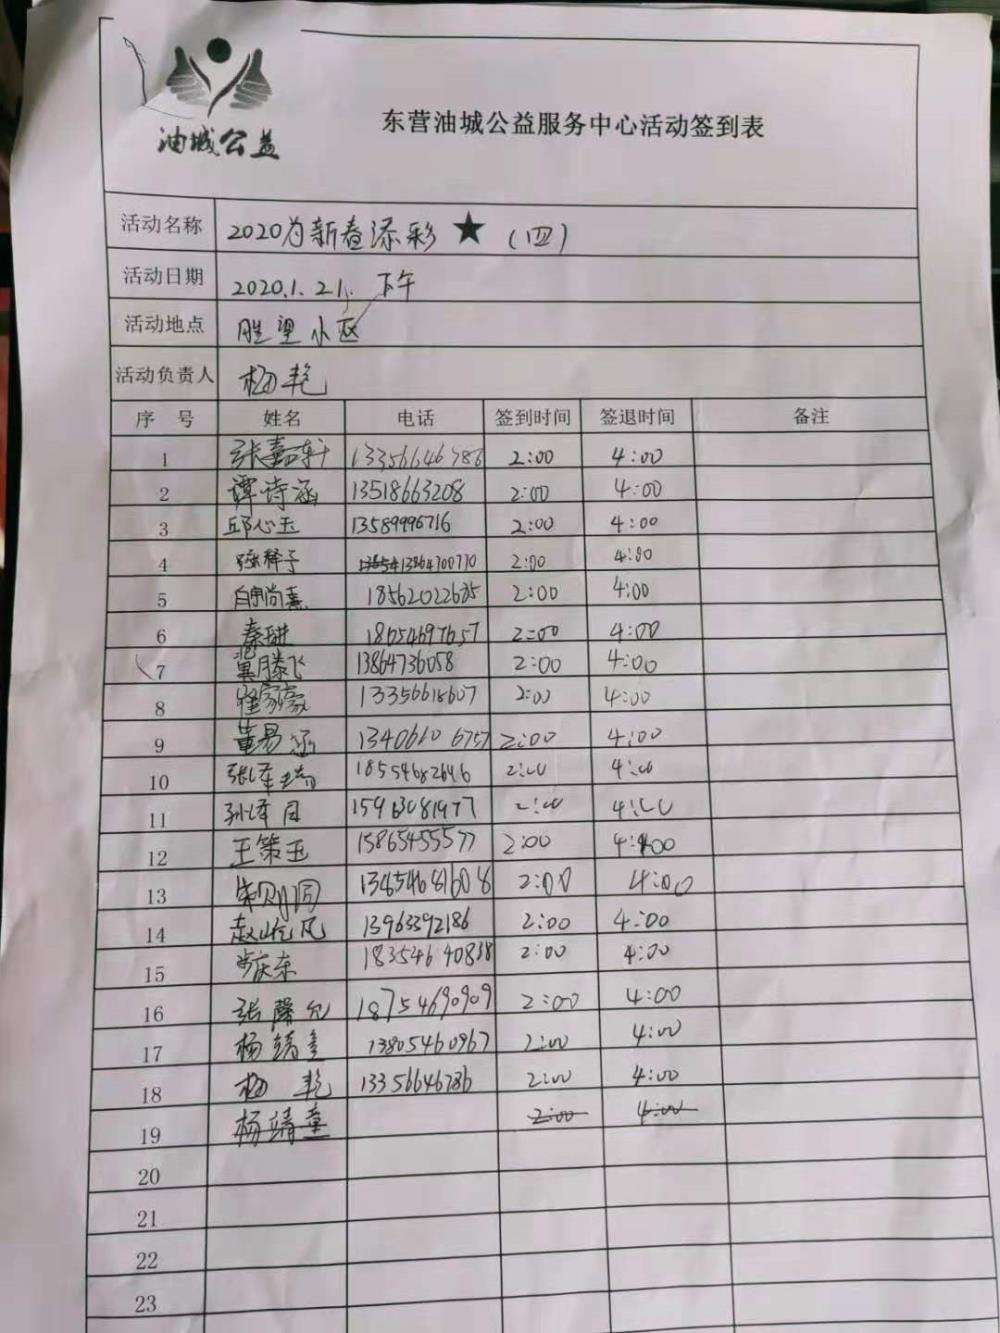 油城公益
东营油城公益服务中心活动签到表
活动名称 2020为新春添彩★(四)
活动日期 2020.1.21. 下午
活动地点 胜望小区
活动负责人 杨艳
序 号 姓名 电话 签到时间 签退时间 备注
1 张嘉轩 13356646786 2:00 4:00
2 谭诗涵 13518663208 2:00 4:00
3 邱心玉 13589996716 2:00 4:00
4 13864700770 2:00 4:00
5 18562022685 2:00 4:00
6 秦琎 18654697657 2:00 4:00
7 冀腾飞 13864736058 2:00 4:00
8 13356618607 2:00 4:00
9 董易涵 13406106757 2:00 4:00
10 张泽瑞 18554682646 2:00 4:00
11 孙泽 15963081977 2:00 4:00
12 王策玉 15865455577 2:00 4:00
13 朱则同 134654681608 2:00 4:00
14 赵屹风 13963392186 2:00 4:00
15 步庆东 18354640838 2:00 4:00
16 张馨允 18754690909 2:00 4:00
17 杨靖童 13805460967 2:00 4:00
18 杨艳 13356646786 2:00 4:00
19 杨靖童 2:00 4:00
20
21
22
23